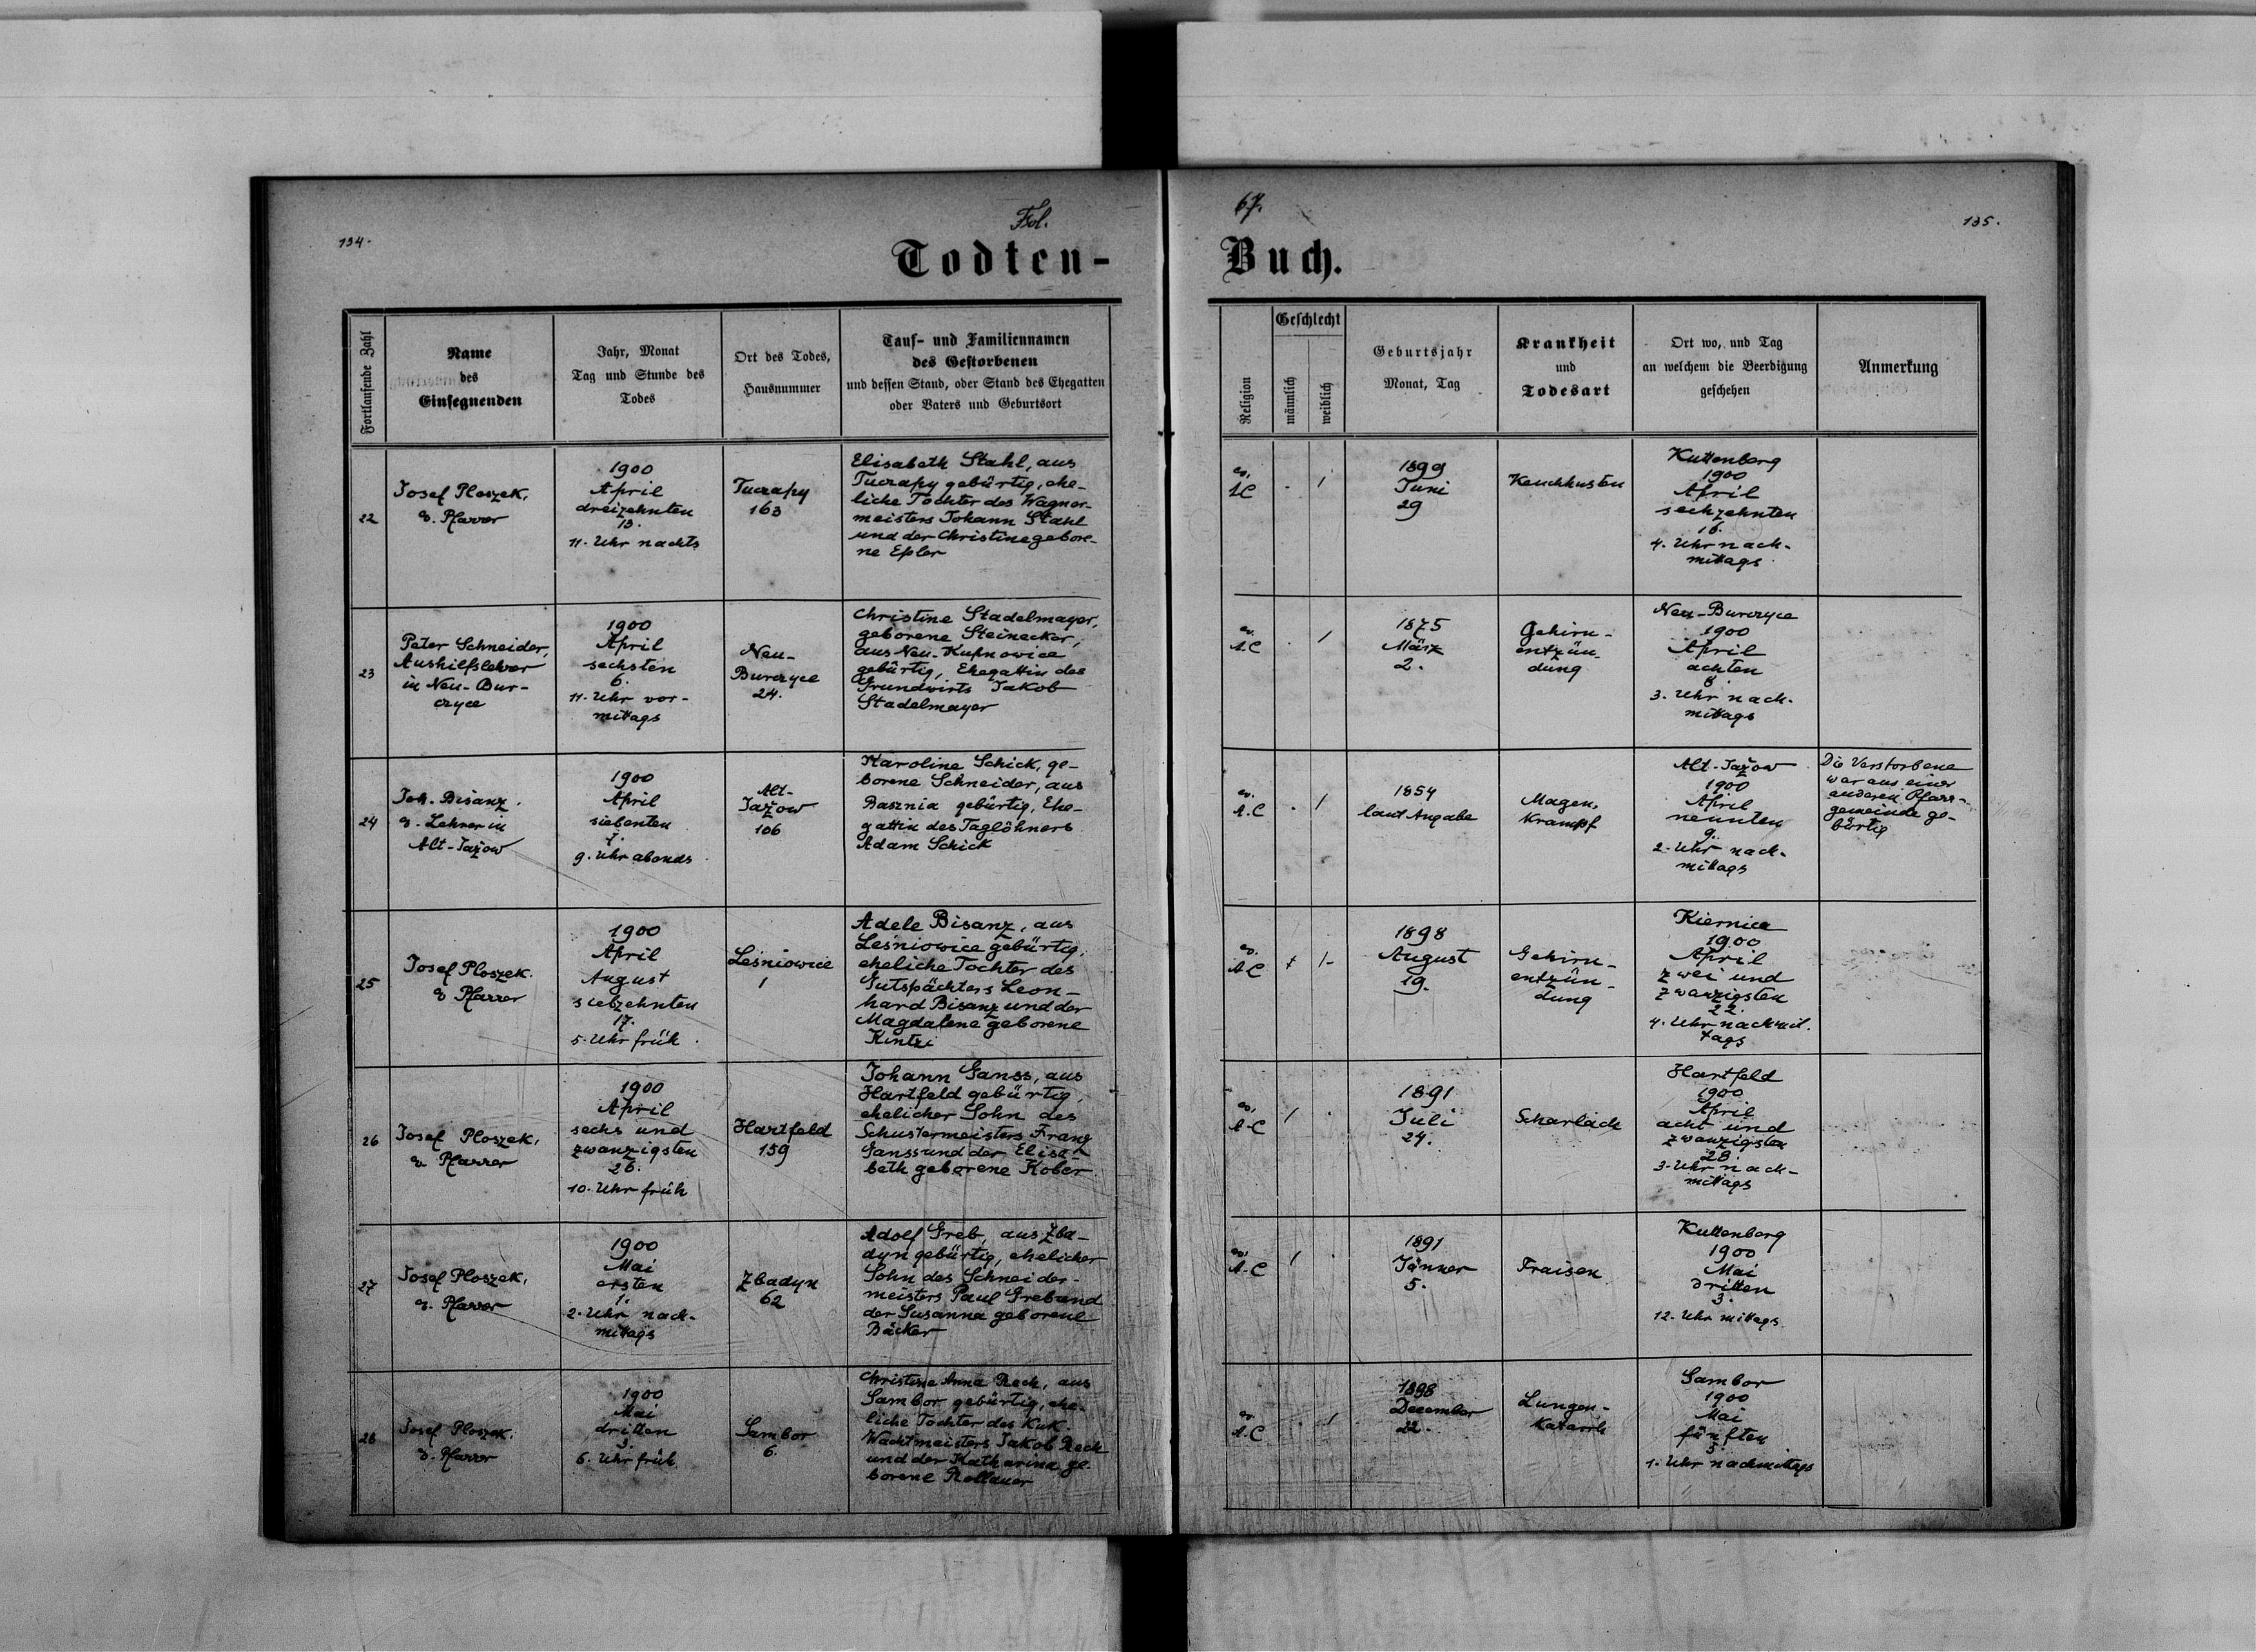 Fol.
67.
134.
135.
Todten-
Buch.
Fortlaufende Zahl
Name
des
Einsegnenden
Jahr, Monat
Tag und Stunde des
Todes
Ort des Todes,
Hausnummer
Tauf- und Familiennamen
des Gestorbenen
und dessen Stand, oder Stand des Ehegatten
oder Vaters und Geburtsort
Religion
Geschlecht
männlich
weiblich
Geburtsjahr
Monat, Tag
Krankheit
und
Todesart
Ort wo, und Tag
an welchem die Beerdigung
geschehen
Anmerkung
22
Josef Ploszek,
ev. Pfarrer
1900
April
dreizehnten
13.
11. Uhr nachts
Tuczapy
163
Elisabeth Stahl, aus
Tuczapy gebürtig, ehe-
liche Tochter des Wagner-
meisters Johann Stahl
und der Christine gebore-
ne Epler
ev.
A.C
. /
1899
Juni
29
Keuchhusten
Kuttenberg
1900
April
sechzehnten
16.
4. Uhr nach-
mittags
23
Peter Schneider,
Aushilfslehrer
in Neu-Bur-
czyce
1900
April
sechsten
6.
11. Uhr vor-
mittags
Neu-
Burczyce
24.
Christine Stadelmayer,
geborene Steinecker,
aus Neu-Kupnovice
gebürtig, Ehegattin des
Grundwirts Jakob
Stadelmayer
ev.
A.C
. /
1875
März
2.
Gehirn-
entzün-
dung
Neu-Burczyce
1900
April
achten
8.
3. Uhr nach-
mittags
24
Joh. Bisanz.
ev. Lehrer in
Alt-Jażow
1900
April
siebenten
7.
9. Uhr abends
Alt-
Jażow
106
Karoline Schick, ge-
borene Schneider, aus
Basznia gebürtig, Ehe-
gattin des Taglöhners
Adam Schick
ev.
A.C
. /
1854
laut Angabe
Magen-
Krampf
Alt-Jażow
1900
April
neunten
9.
2. Uhr nach-
mittags
Die Verstorbene
war aus einer
anderen Pfarr-
gemeinde ge-
bürtig
25
Josef Ploszek.
ev Pfarrer
1900
April
August
siebzehnten
17.
5. Uhr früh
Leśniowice
1
Adele Bisanz, aus
Leśniowice gebürtig,
eheliche Tochter des
Gutspächters Leon-
hard Bisanz und der
Magdalene geborene
Kintzi
ev.
A.C
/-
1898
August
19.
Gehirn-
entzün-
dung
Kiernica
1900
April
zwei und
zwanzigsten
22.
4. Uhr nachmit-
tags
26
Josef Ploszek,
ev Pfarrer
1900
April
sechs und
zwanzigsten
26.
10. Uhr früh
Hartfeld
159
Johann Ganss, aus
Hartfeld gebürtig,
ehelicher Sohn des
Schustermeisters Franz
Ganss und der Elisa-
beth geborene Kober
ev.
A.C
/ .
1891
Juli
24.
Scharlach
Hartfeld
1900
April
acht und
zwanzigsten
28.
3. Uhr nach-
mittags
27
Josef Ploszek,
ev. Pfarrer
1900
Mai
ersten
1.
2. Uhr nach-
mittags
Zbadyn
62
Adolf Greb, aus Zba-
dyn gebürtig, ehelicher
Sohn des Schneider-
meisters Paul Greb und
der Susanna geborene
Bäcker
ev.
A.C
/ .
1891
Jänner
5.
Fraisen
Kuttenberg
1900
Mai
dritten
3.
12. Uhr mittags
28
Josef Ploszek.
ev. Pfarrer
1900
Mai
dritten
3.
6. Uhr früh
Sambor
6.
Christine Anna Reck, aus
Sambor gebürtig, ehe-
liche Tochter des KuK
Wachtmeisters Jakob Reck
und der Katharina ge-
borene Rollauer
ev.
A.C
. /
1898
December
22.
Lungen-
Katarrh
Sambor
1900
Mai
fünften
5.
1. Uhr nachmittags